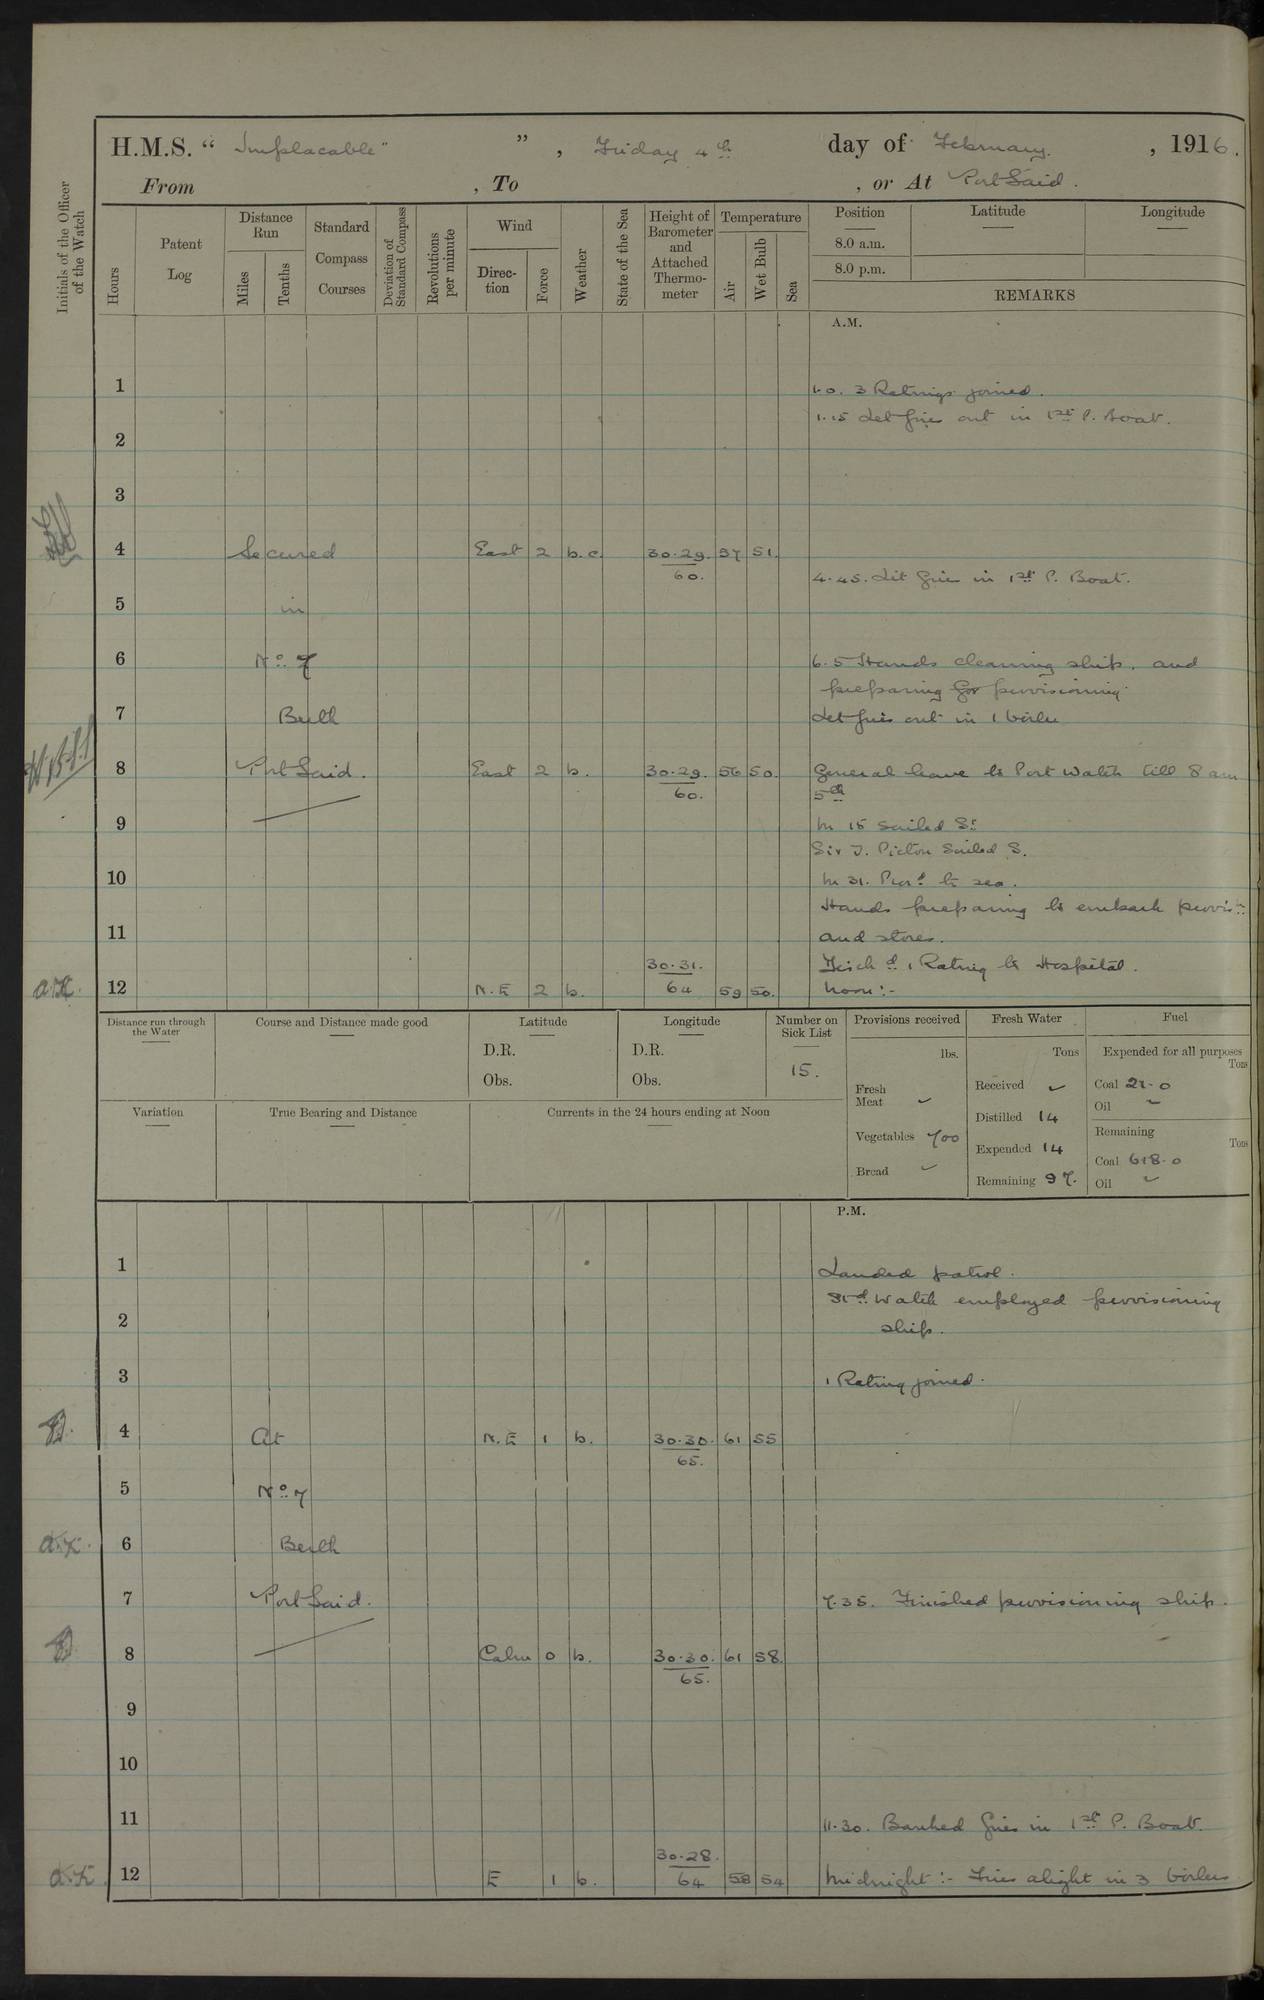 H.M.S. " Implacable" " , Friday 4th day of February. , 1916.
From , To , or At Port Said.
Initials of the Officer of the Watch
Hours
Patent Log
Distance Run
Miles
Tenths
Standard Compass Courses
Deviation of Standard Compass
Revolutions per minute
Wind
Direction
Force
Weather
State of the Sea
Height of Barometer and Attached Thermometer
Temperature
Air
Wet Bulb
Sea
Position Latitude Longitude
8.0 a.m.
8.0 p.m.
REMARKS
A.M.
1 1.0. 3 Ratings joined.
1.15 Let fires out in 1st P. Boat.
2
3
4 Secured East 2 b.c. 30.29. 57 51.
60.
4.45. Lit fires in 1st P. Boat.
5 in
6 No. 7 6.5 Hands cleaning ship. and
preparing for provisioning.
7 Berth Let fires out in 1 boiler
8 Port Said. East 2 b. 30.29. 56 50. General leave to Port Watch till 8 am
60. 5th
9 M 15 sailed S.
Sir T. Picton Sailed S.
10 M 31. Proc.d to sea.
Hands preparing to embark provis.ns
11 and stores.
30.31. Disch.d 1 Rating to Hospital.
A.K. 12 N.E 2 b. 64 59 50. Noon:-
Distance run through the Water
Course and Distance made good
Latitude
D.R.
Obs.
Longitude
D.R.
Obs.
Number on Sick List
15.
Provisions received
lbs.
Fresh Meat ✓
Vegetables 700
Bread ✓
Fresh Water
Tons
Received ✓
Distilled 14
Expended 14
Remaining 97.
Fuel
Expended for all purposes
Tons
Coal 21.0
Oil ✓
Remaining
Tons
Coal 618.0
Oil ✓
Variation
True Bearing and Distance
Currents in the 24 hours ending at Noon
P.M.
1 Landed patrol.
Stbd Watch employed provisioning
2 ship.
3 1 Rating joined.
4 At N.E 1 b. 30.30. 61 55
65.
5 No. 7
A.K. 6 Berth
7 Port Said. 7.35. Finished provisioning ship.
8 Calm 0 b. 30.30. 61 58.
65.
9
10
11 11.30. Banked fires in 1st P. Boat.
30.28.
A.K. 12 E 1 b. 64 58 54 Midnight:- Fires alight in 3 boilers